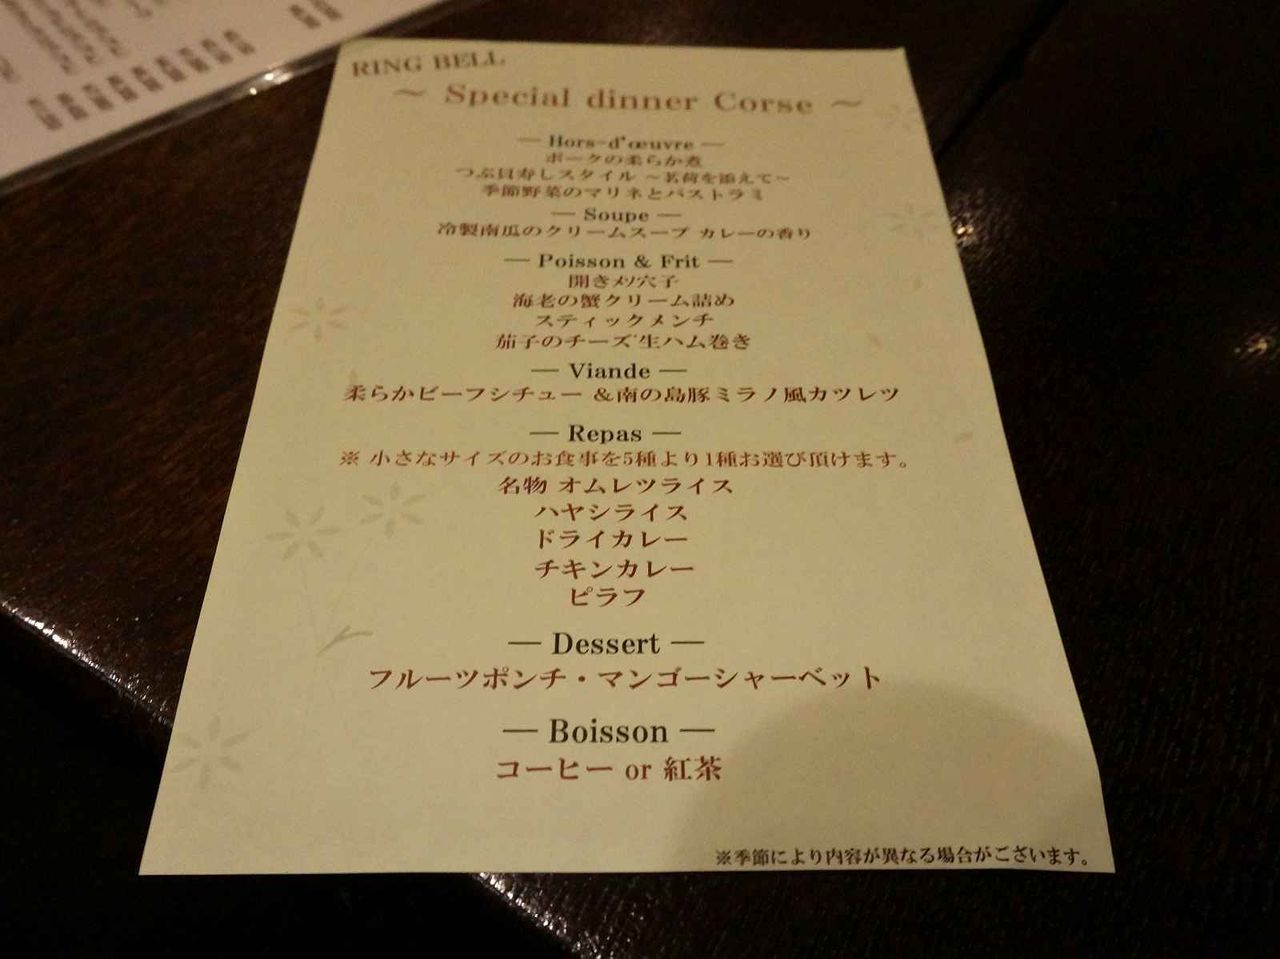 RING BELL
～ Special dinner Corse ～
― Hors-d'œuvre ―
ポークの柔らか煮
つぶ貝寿しスタイル ～茗荷を添えて～
季節野菜のマリネとパストラミ
― Soupe ―
冷製南瓜のクリームスープ カレーの香り
― Poisson & Frit ―
開きメソ穴子
海老の蟹クリーム詰め
スティックメンチ
茄子のチーズ生ハム巻き
― Viande ―
柔らかビーフシチュー ＆南の島豚ミラノ風カツレツ
― Repas ―
※ 小さなサイズのお食事を5種より1種お選び頂けます。
名物 オムレツライス
ハヤシライス
ドライカレー
チキンカレー
ピラフ
― Dessert ―
フルーツポンチ・マンゴーシャーベット
― Boisson ―
コーヒー or 紅茶
※季節により内容が異なる場合がございます。